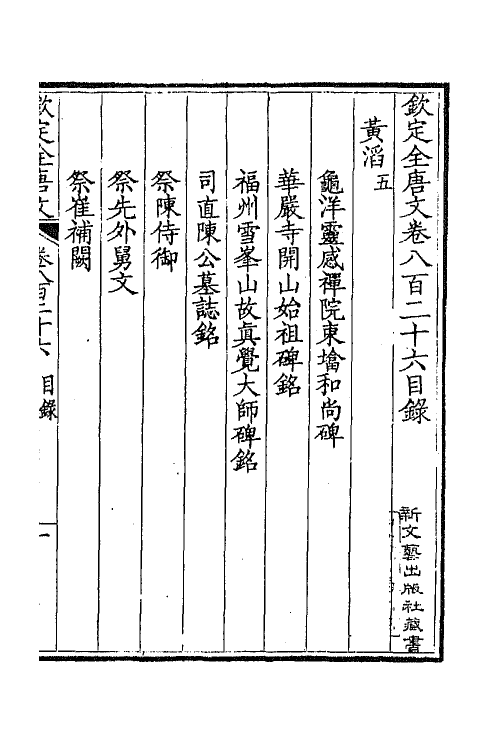 欽定全唐文卷八百二十六目錄
新文藝出版社藏書
黃滔五
龜洋靈感禪院東塔和尚碑
華嚴寺開山始祖碑銘
福州雪峯山故真覺大師碑銘
司直陳公墓誌銘
祭陳侍御
祭先外舅文
祭崔補闕
欽定全唐文 卷八百二十六 目錄 一